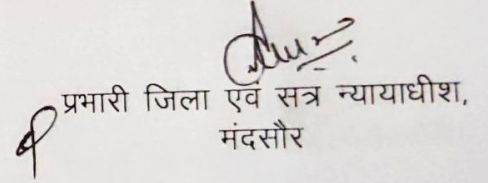 प्रभारी जिला एवं सत्र न्यायाधीश,
मंदसौर